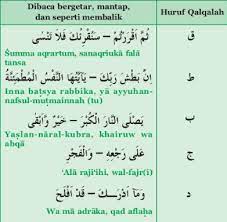 Dibaca bergetar, mantap,
dan seperti membalik
Huruf Qalqalah
ثُمَّ أَقْرَرْتُمْ – سَنُقْرِئُكَ فَلَا تَنْسٰى
ق
Šumma aqrartum, sanaqriukā falā
tansa
اِنَّ بَطْشَ رَبِّكَ – يَآ أَيَّتُهَا النَّفْسُ الْمُطْمَئِنَّةُ
ط
Inna baṭsya rabbika, yā ayyuhan-
nafsul-muṭmainnah (tu)
يَصْلَى النَّارَ الْكُبْرَ – خَيْرٌ وَأَبْقٰى
ب
Yaṣlan-nāral-kubra, khairuw wa
abqā
عَلٰى رَجْعِهِ – وَالْفَجْرِ
ج
'Alā raji'ihi, wal-fajr(i)
وَمَآ اَدْرٰىكَ – قَدْ اَفْلَحَ
د
Wa mā adrāka, qad aflaha